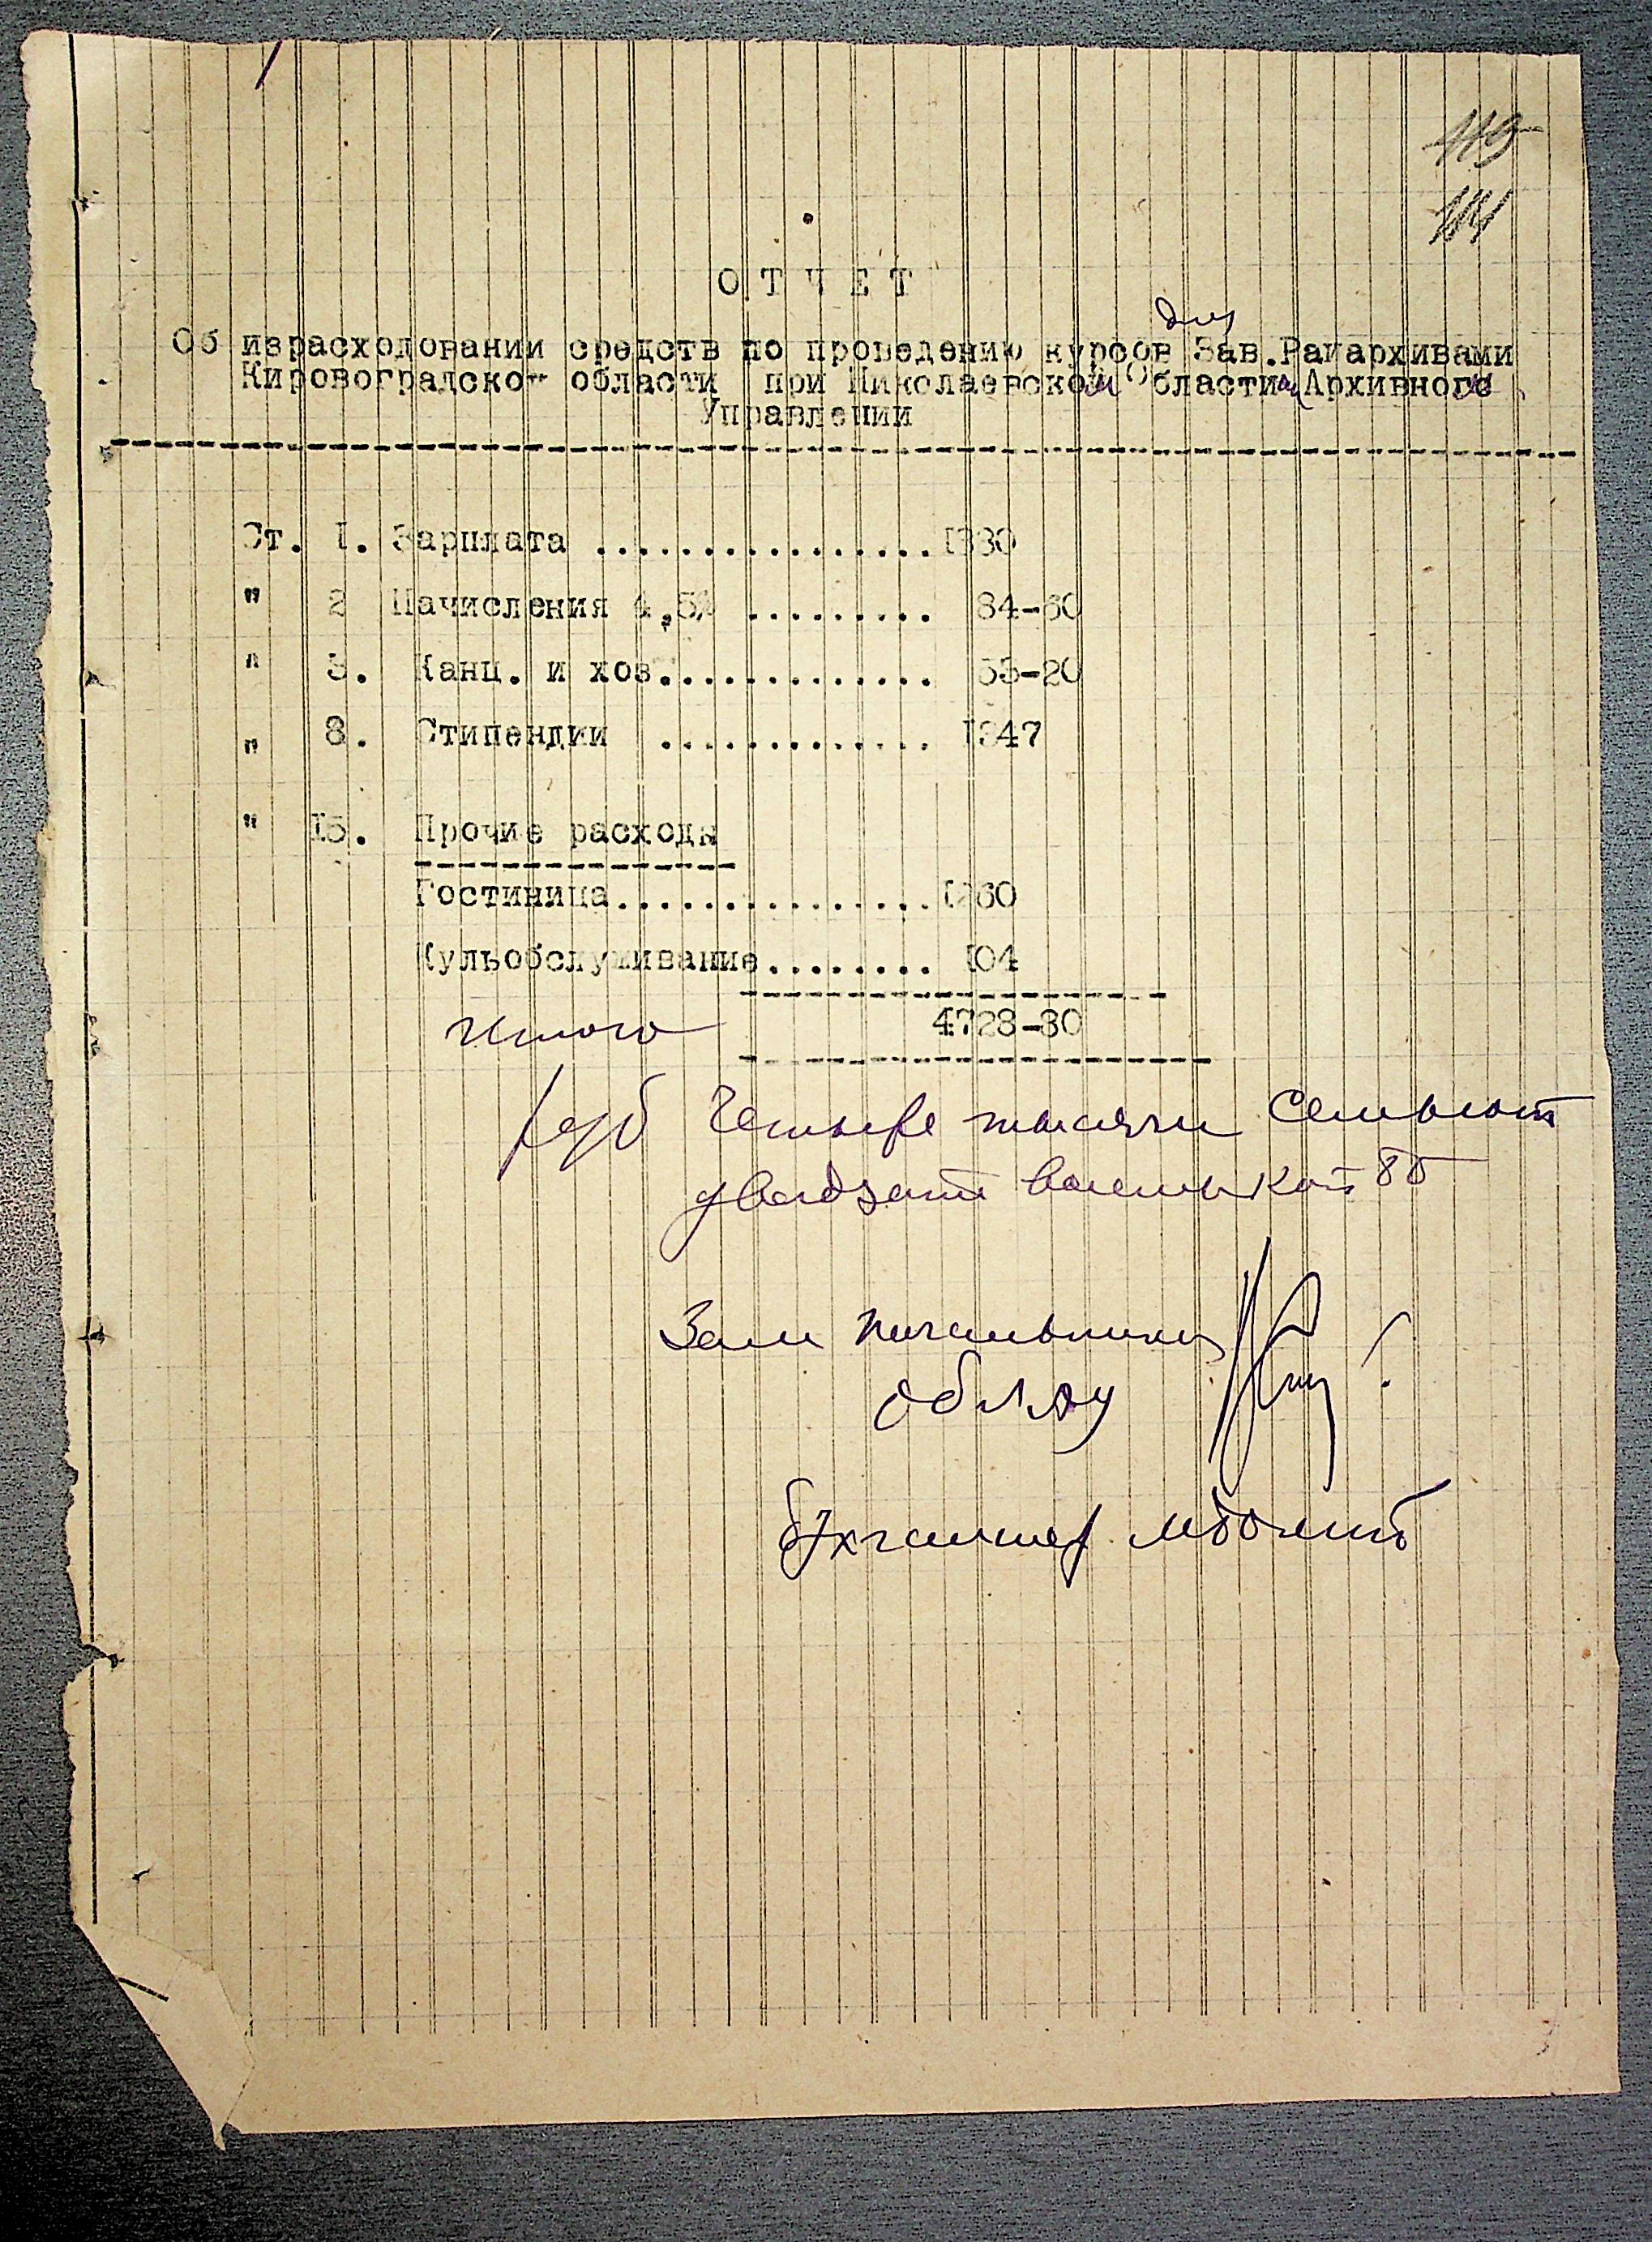 119
114
О Т Ч Е Т
для
Об израсходовании средств по проведению курсов Зав.Райархивами
Кировоградской области при Николаевском Областном Архивном
Управлении
Ст. I. Зарплата ................I880
" 2 Начисления 4,5% ......... 84-60
" 3. Канц. и хоз............. 53-20
" 8. Стипендии ............. I347
" I5. Прочие расходы
Гостиница...............I260
Культобслуживание........ I04
Итого 4728-80
руб Четыре тысячи семьсот
двадзать восемь коп 80
Зам начальника
обл АУ
бухгалтер